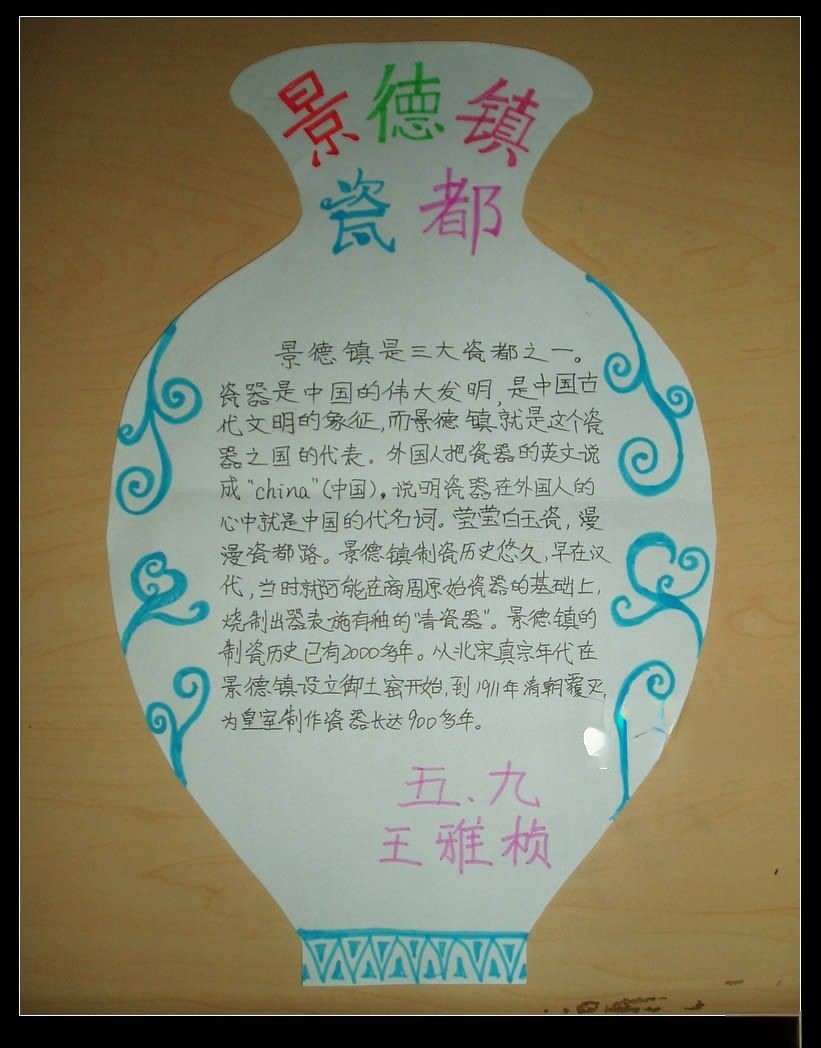 景德镇
瓷都
景德镇是三大瓷都之一。
瓷器是中国的伟大发明,是中国古
代文明的象征,而景德镇就是这个瓷
器之国的代表。外国人把瓷器的英文说
成“china”(中国)。说明瓷器在外国人的
心中就是中国的代名词。莹莹白玉瓷,漫
漫瓷都路。景德镇制瓷历史悠久,早在汉
代,当时就可能在商周原始瓷器的基础上,
烧制出器表施有釉的“青瓷器”。景德镇的
制瓷历史已有2000多年。从北宋真宗年代在
景德镇设立御土窑开始,到1911年清朝覆灭,
为皇室制作瓷器长达900多年。
五、九
王雅桢